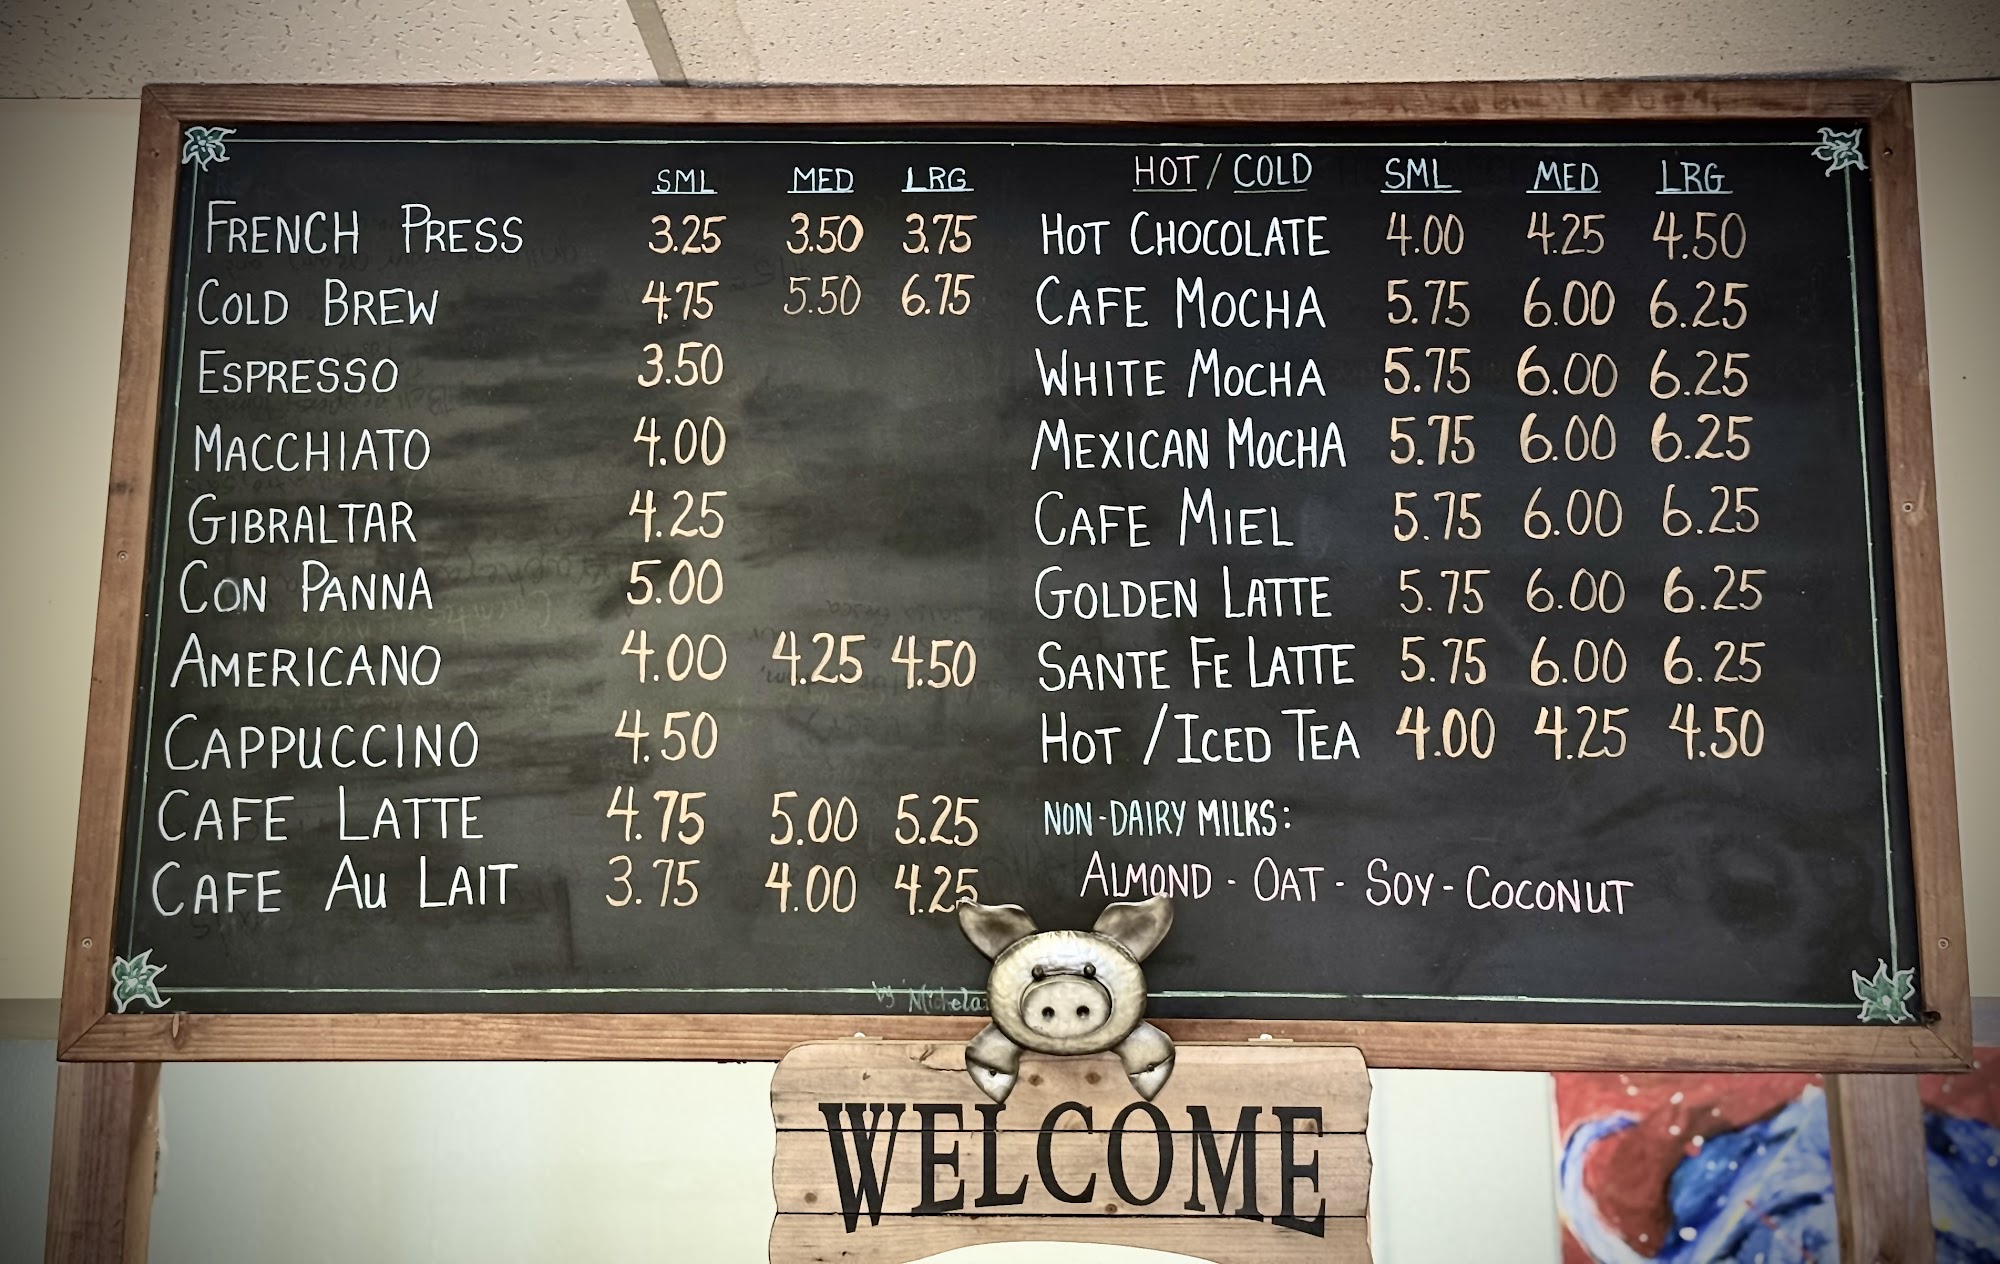 SML MED LRG
FRENCH PRESS 3.25 3.50 3.75
COLD BREW 4.75 5.50 6.75
ESPRESSO 3.50
MACCHIATO 4.00
GIBRALTAR 4.25
CON PANNA 5.00
AMERICANO 4.00 4.25 4.50
CAPPUCCINO 4.50
CAFE LATTE 4.75 5.00 5.25
CAFE AU LAIT 3.75 4.00 4.25
HOT / COLD SML MED LRG
HOT CHOCOLATE 4.00 4.25 4.50
CAFE MOCHA 5.75 6.00 6.25
WHITE MOCHA 5.75 6.00 6.25
MEXICAN MOCHA 5.75 6.00 6.25
CAFE MIEL 5.75 6.00 6.25
GOLDEN LATTE 5.75 6.00 6.25
SANTE FE LATTE 5.75 6.00 6.25
HOT / ICED TEA 4.00 4.25 4.50
NON-DAIRY MILKS:
ALMOND - OAT - SOY - COCONUT
by
WELCOME